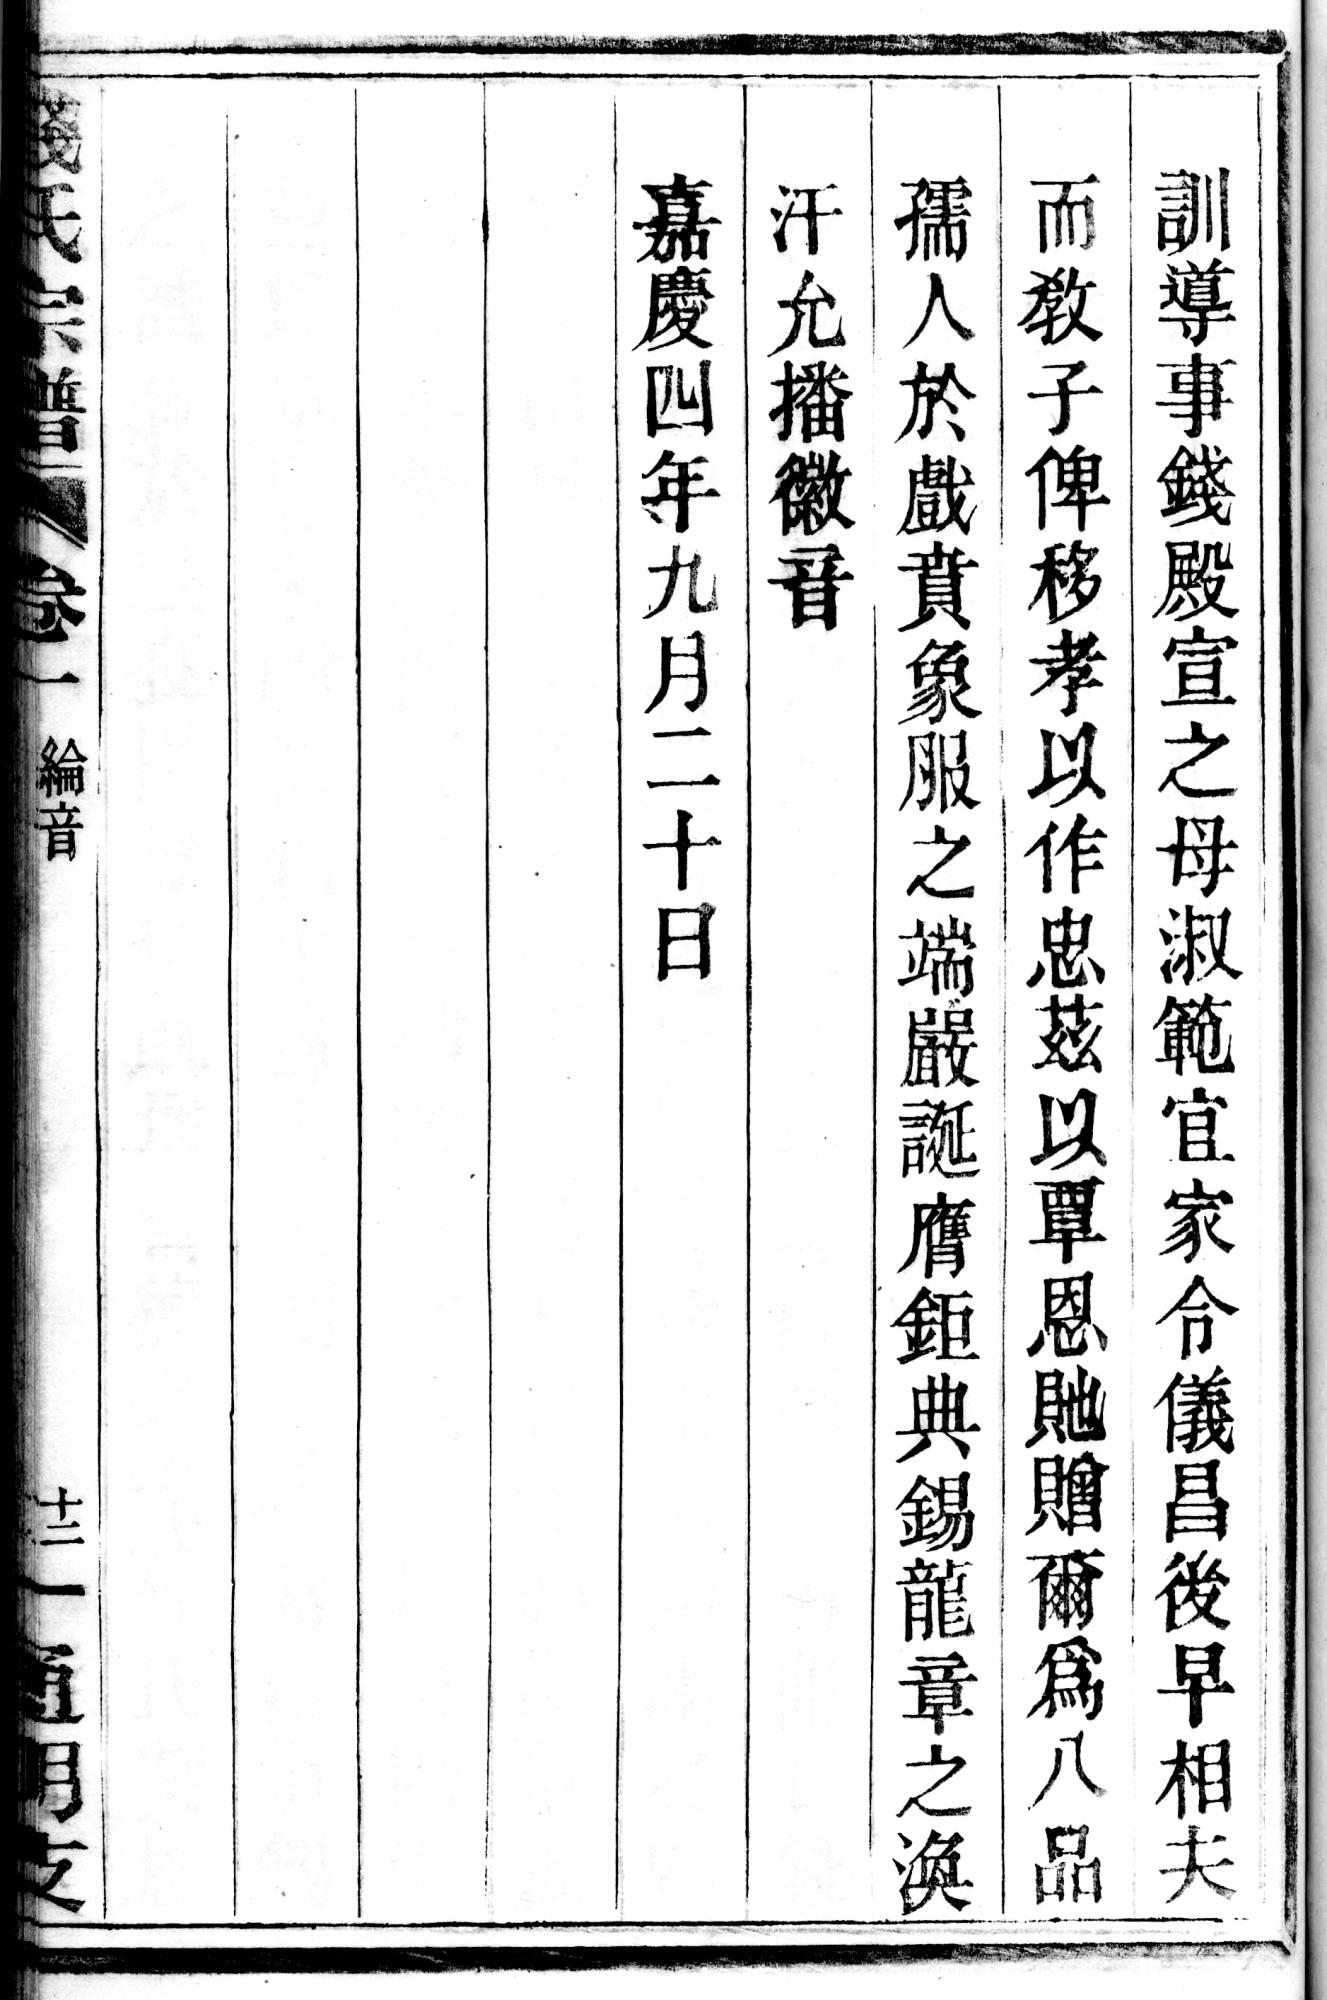 訓導事錢殿宣之母淑範宜家令儀昌後早相夫
而敎子俾移孝以作忠茲以覃恩貤贈爾爲八品
孺人於戲賁象服之端嚴誕膺鉅典錫龍章之渙
汗允播徽音
嘉慶四年九月二十日
錢氏宗譜 卷一 綸音 十二 通明支